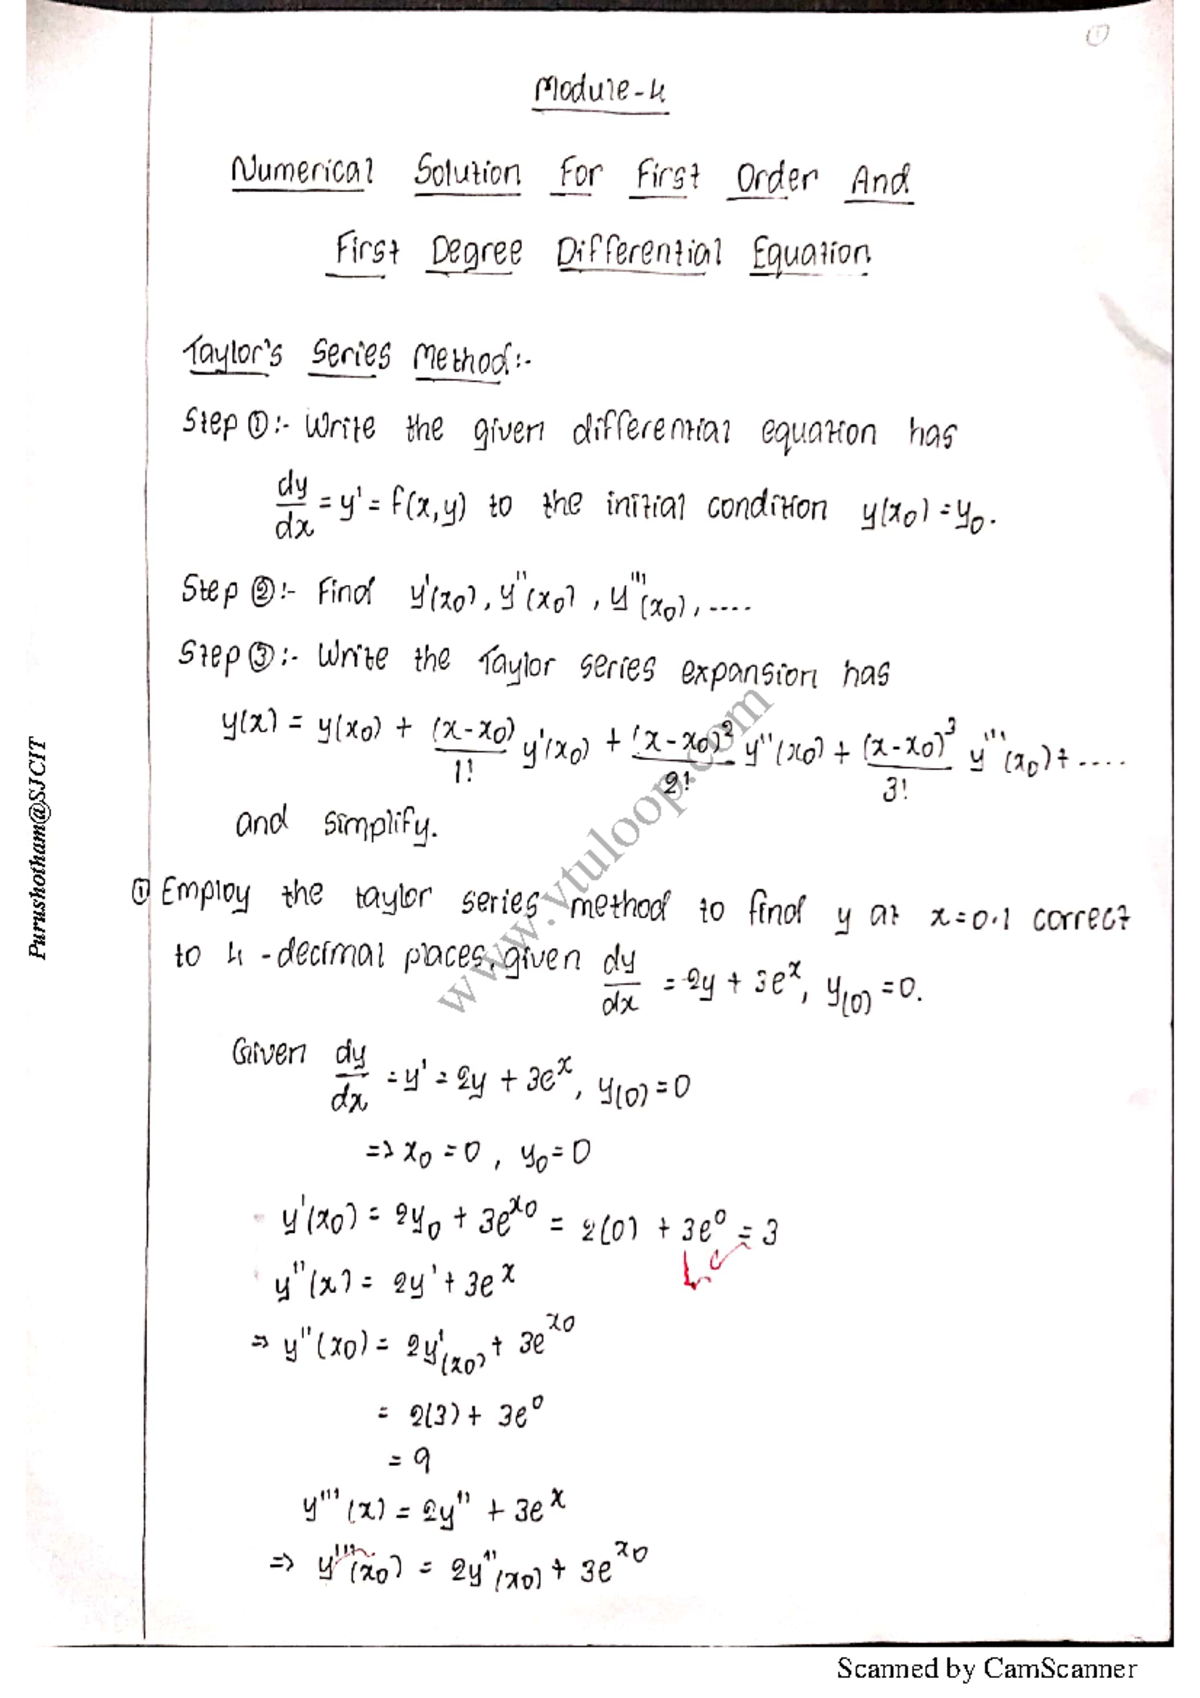 ①
Module-4
Numerical Solution For First Order And
First Degree Differential Equation
Taylor's Series Method:-
Step ①:- Write the given differential equation has
dy/dx = y' = f(x,y) to the initial condition y(x₀) = y₀.
Step ②:- Find y'(x₀), y''(x₀), y'''(x₀), ....
Step ③:- Write the Taylor series expansion has
y(x) = y(x₀) + (x-x₀)/1! y'(x₀) + (x-x₀)²/2! y''(x₀) + (x-x₀)³/3! y'''(x₀) + ....
and simplify.
① Employ the taylor series method to find y at x=0.1 correct
to 4-decimal places, given dy/dx = 2y + 3eˣ, y(0) = 0.
Given dy/dx = y' = 2y + 3eˣ, y(0) = 0
=> x₀ = 0, y₀ = 0
y'(x₀) = 2y₀ + 3e^x₀ = 2(0) + 3e⁰ = 3
y''(x) = 2y' + 3eˣ
=> y''(x₀) = 2y'(x₀) + 3e^x₀
= 2(3) + 3e⁰
= 9
y'''(x) = 2y'' + 3eˣ
=> y'''(x₀) = 2y''(x₀) + 3e^x₀
Purushotham@SJCIT
www.vtuloop.com
Scanned by CamScanner